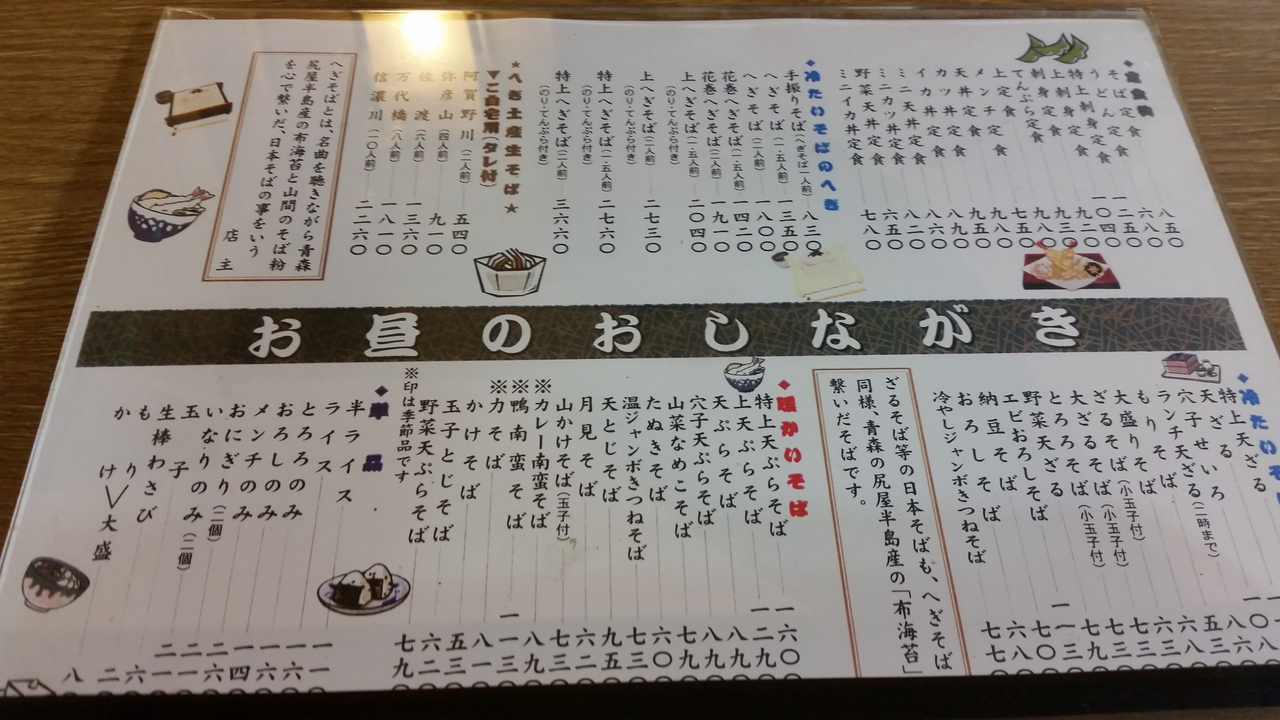 ◆定食物
そば定食 八五〇
うどん定食 六八〇
特上刺身定食 一二五〇
上刺身定食 一〇四〇
刺身定食 九二〇
てんぷら定食 九三〇
上定食 八八〇
メンチ定食 七五〇
天丼定食 九五〇
カツ丼定食 八九〇
イカ丼定食 八六〇
ミニ天丼定食 八二〇
ミニカツ丼定食 五二〇
野菜天丼定食 六八〇
ミニイカ丼定食 七八〇
◆冷たいそばのへぎ
手振りそば(へぎそば一人前) 八三〇
へぎそば(一・五人前) 一三五〇
へぎそば(二人前) 一八〇〇
花巻へぎそば(一・五人前) 一四二〇
花巻へぎそば(二人前) 一九一〇
上へぎそば(一・五人前) 二〇四〇
(のり・てんぷら付き)
上へぎそば(二人前) 二七三〇
(のり・てんぷら付き)
特上へぎそば(一・五人前) 二七六〇
(のり・てんぷら付き)
特上へぎそば(二人前) 三六六〇
(のり・てんぷら付き)
★へぎ土産生そば★
▼ご自宅用(タレ付)
阿賀野川(二人前) 五四〇
弥彦山(四人前) 九一〇
佐渡(六人前) 一三六〇
万代橋(八人前) 一八一〇
信濃川(一〇人前) 二二六〇
へぎそばとは、名曲を聴きながら青森
尻屋半島産の布海苔と山間のそば粉
を心で繋いだ、日本そばの事をいう
店主
お昼のおしながき
◆冷たいそば
特上天ざる
天ざる
穴子せいろ
ランチ天ざる(二時まで)
もりそば
大盛りそば
ざるそば(小玉子付)
大ざるそば(小玉子付)
とろろそば
野菜天ざる
エビおろしそば
納豆そば
おろしそば
冷やしジャンボきつねそば
ざるそば等の日本そばも、へぎそば
同様、青森の尻屋半島産の「布海苔」
繋いだそばです。
◆暖かいそば
特上天ぷらそば
上天ぷらそば
天ぷらそば
穴子天ぷらそば
山菜なめこそば
たぬきそば
温ジャンボきつねそば
天とじそば
月見そば
山かけそば(玉子付)
※カレー南蛮そば
※鴨南蛮そば
※力そば
かけそば
玉子とじそば
野菜天ぷらそば
※印は季節品です
◆単品
半ライス
ライス
とろろのみ
おろしのみ
メンチのみ
おにぎり(二個)
いなりのみ(二個)
玉子
生棒わさび
もり
かけ＞大盛